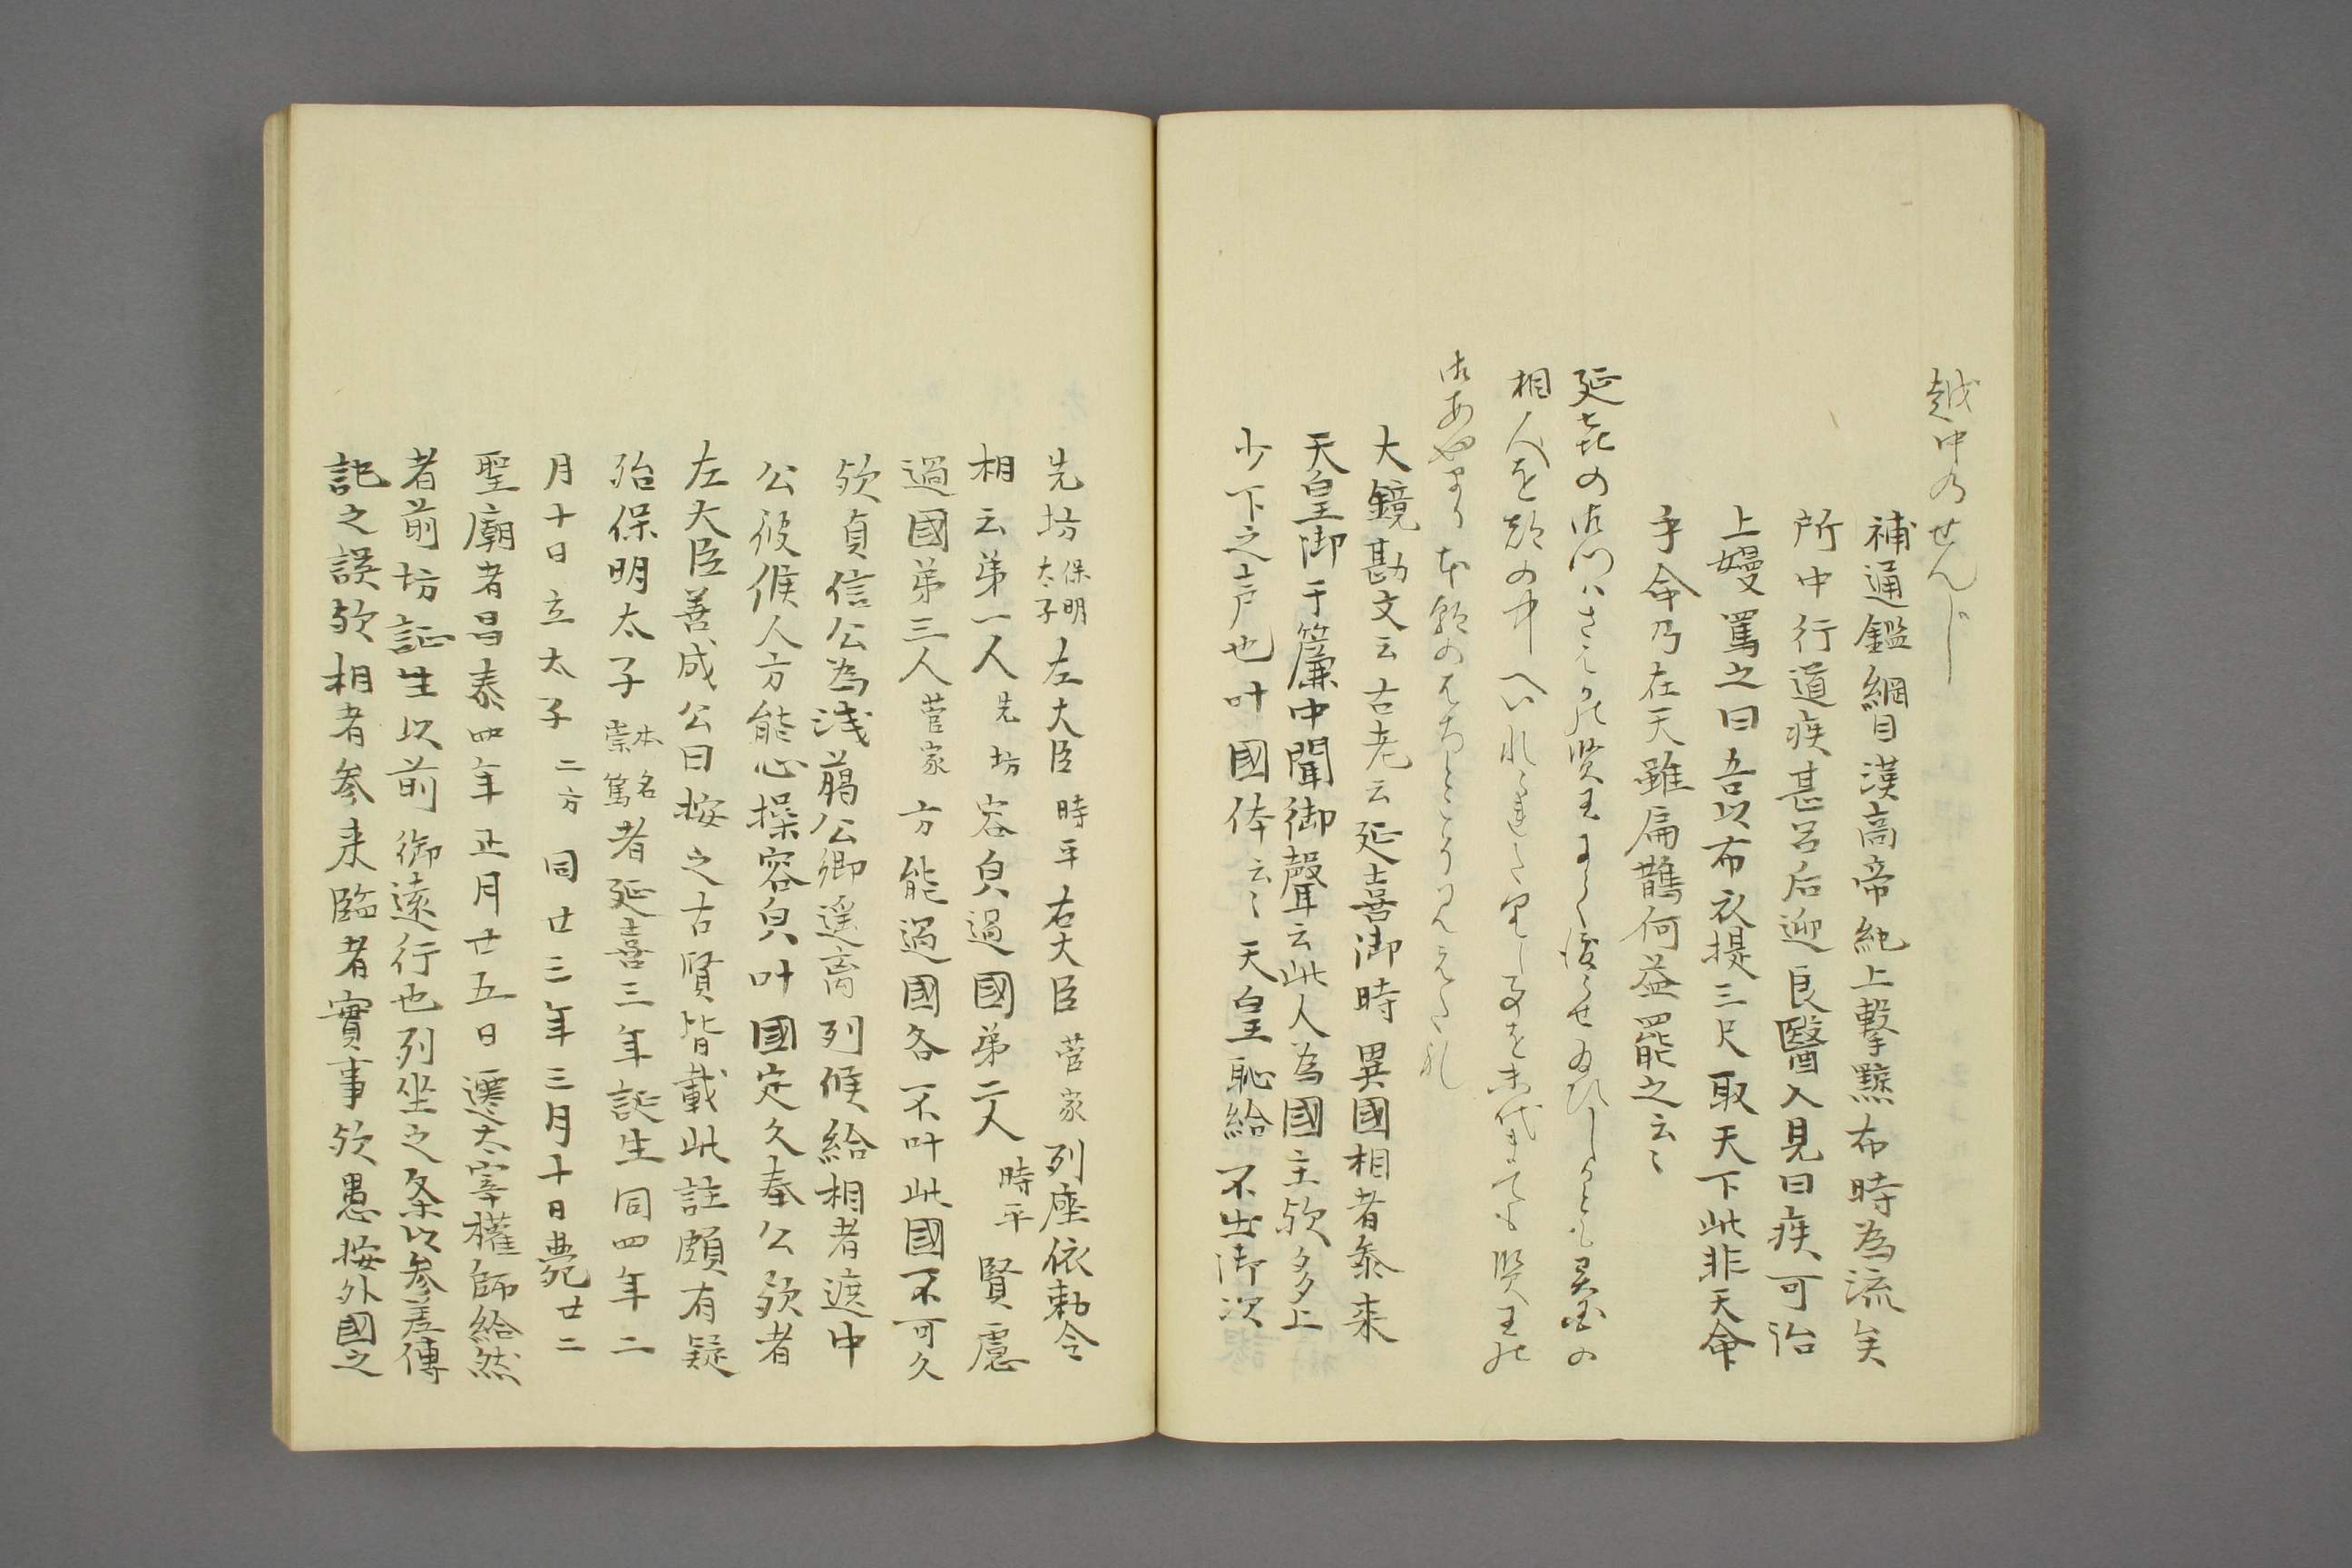 越中のせんじ
補通鑑綱目漢高帝紀上撃黥布時為流矢
所中行道疾甚呂后迎良醫入見曰疾可治
上嫚罵之曰吾以布衣提三尺取天下此非天命
乎命乃在天雖扁鵲何益罷之云〻
延喜の御門はさしもの賢王にて渡らせ給ひしかとも異国の
相人を都の中へいれられたりし事を末代まても賢王の
御あやまり本朝のはちとこそ見えたれ
大鏡勘文云古老云延喜御時異國相者参来
天皇御于簾中聞御聲云此人為國主歟多上
少下之声也叶國体云〻天皇恥給不出御次
先坊保明太子左大臣時平右大臣菅家列座依勅令
相云第一人先坊容皃過國第二人時平賢慮
過國第三人菅家方能過國各不叶此國不可久
歟貞信公為浅﨟公卿遥离列候給相者遮中
公彼候人方能心操容皃叶國定久奉公歟者
左大臣善成公曰按之古賢皆載此註頗有疑
殆保明太子本名崇篤者延喜三年誕生同四年二
月十日立太子二方同廿三年三月十日薨廿二
聖廟者昌泰四年正月廿五日遷太宰權師給然
者前坊誕生以前御遠行也列坐之条以参差傳
記之誤歟相者参来臨者實事歟愚按外國之